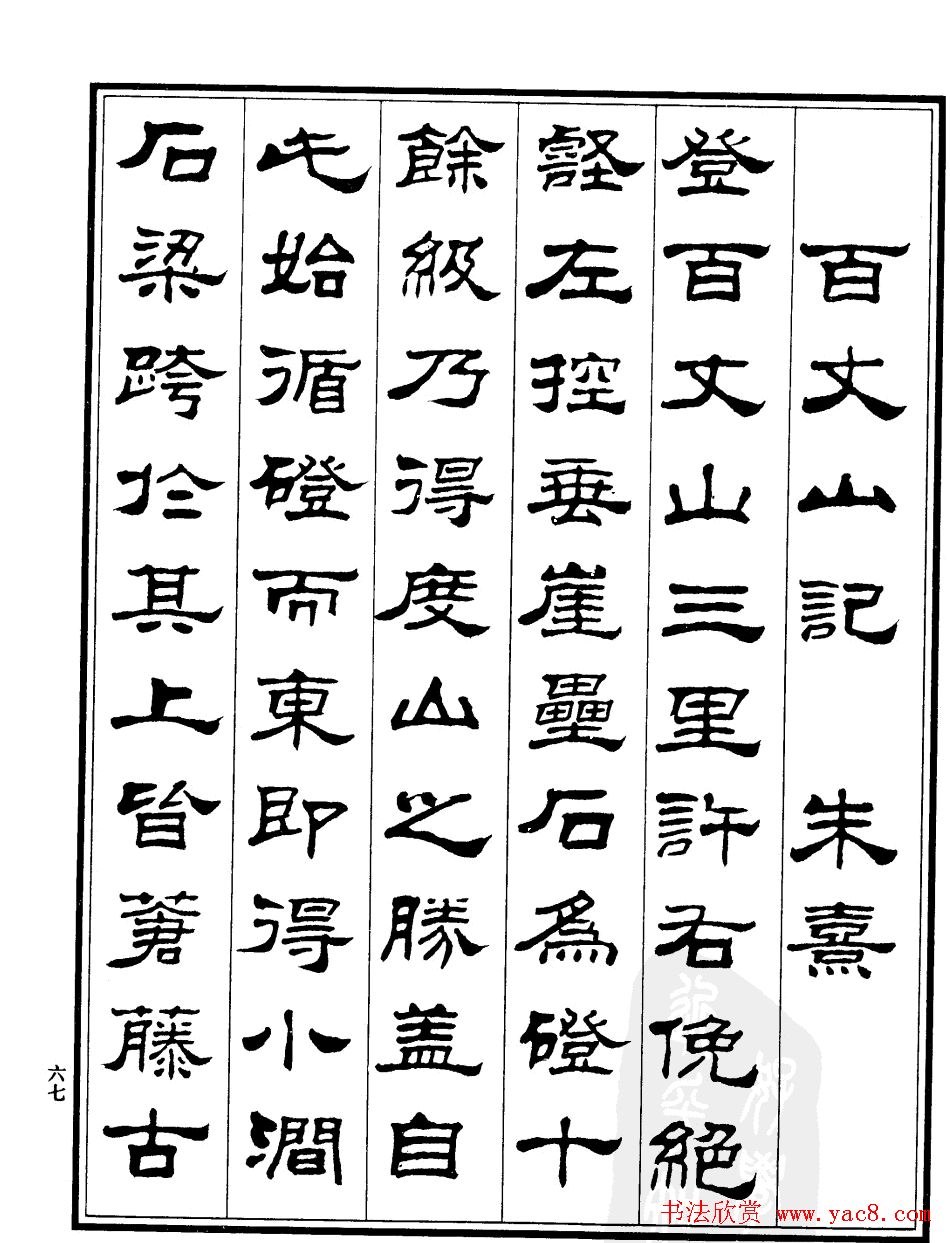 百丈山記 朱熹
登百丈山三里許右俛絕
壑左控垂崖壘石為磴十
餘級乃得度山之勝盖自
此始循磴而東即得小澗
石梁跨於其上皆蒼藤古
六七
书法欣赏 www.yac8.com